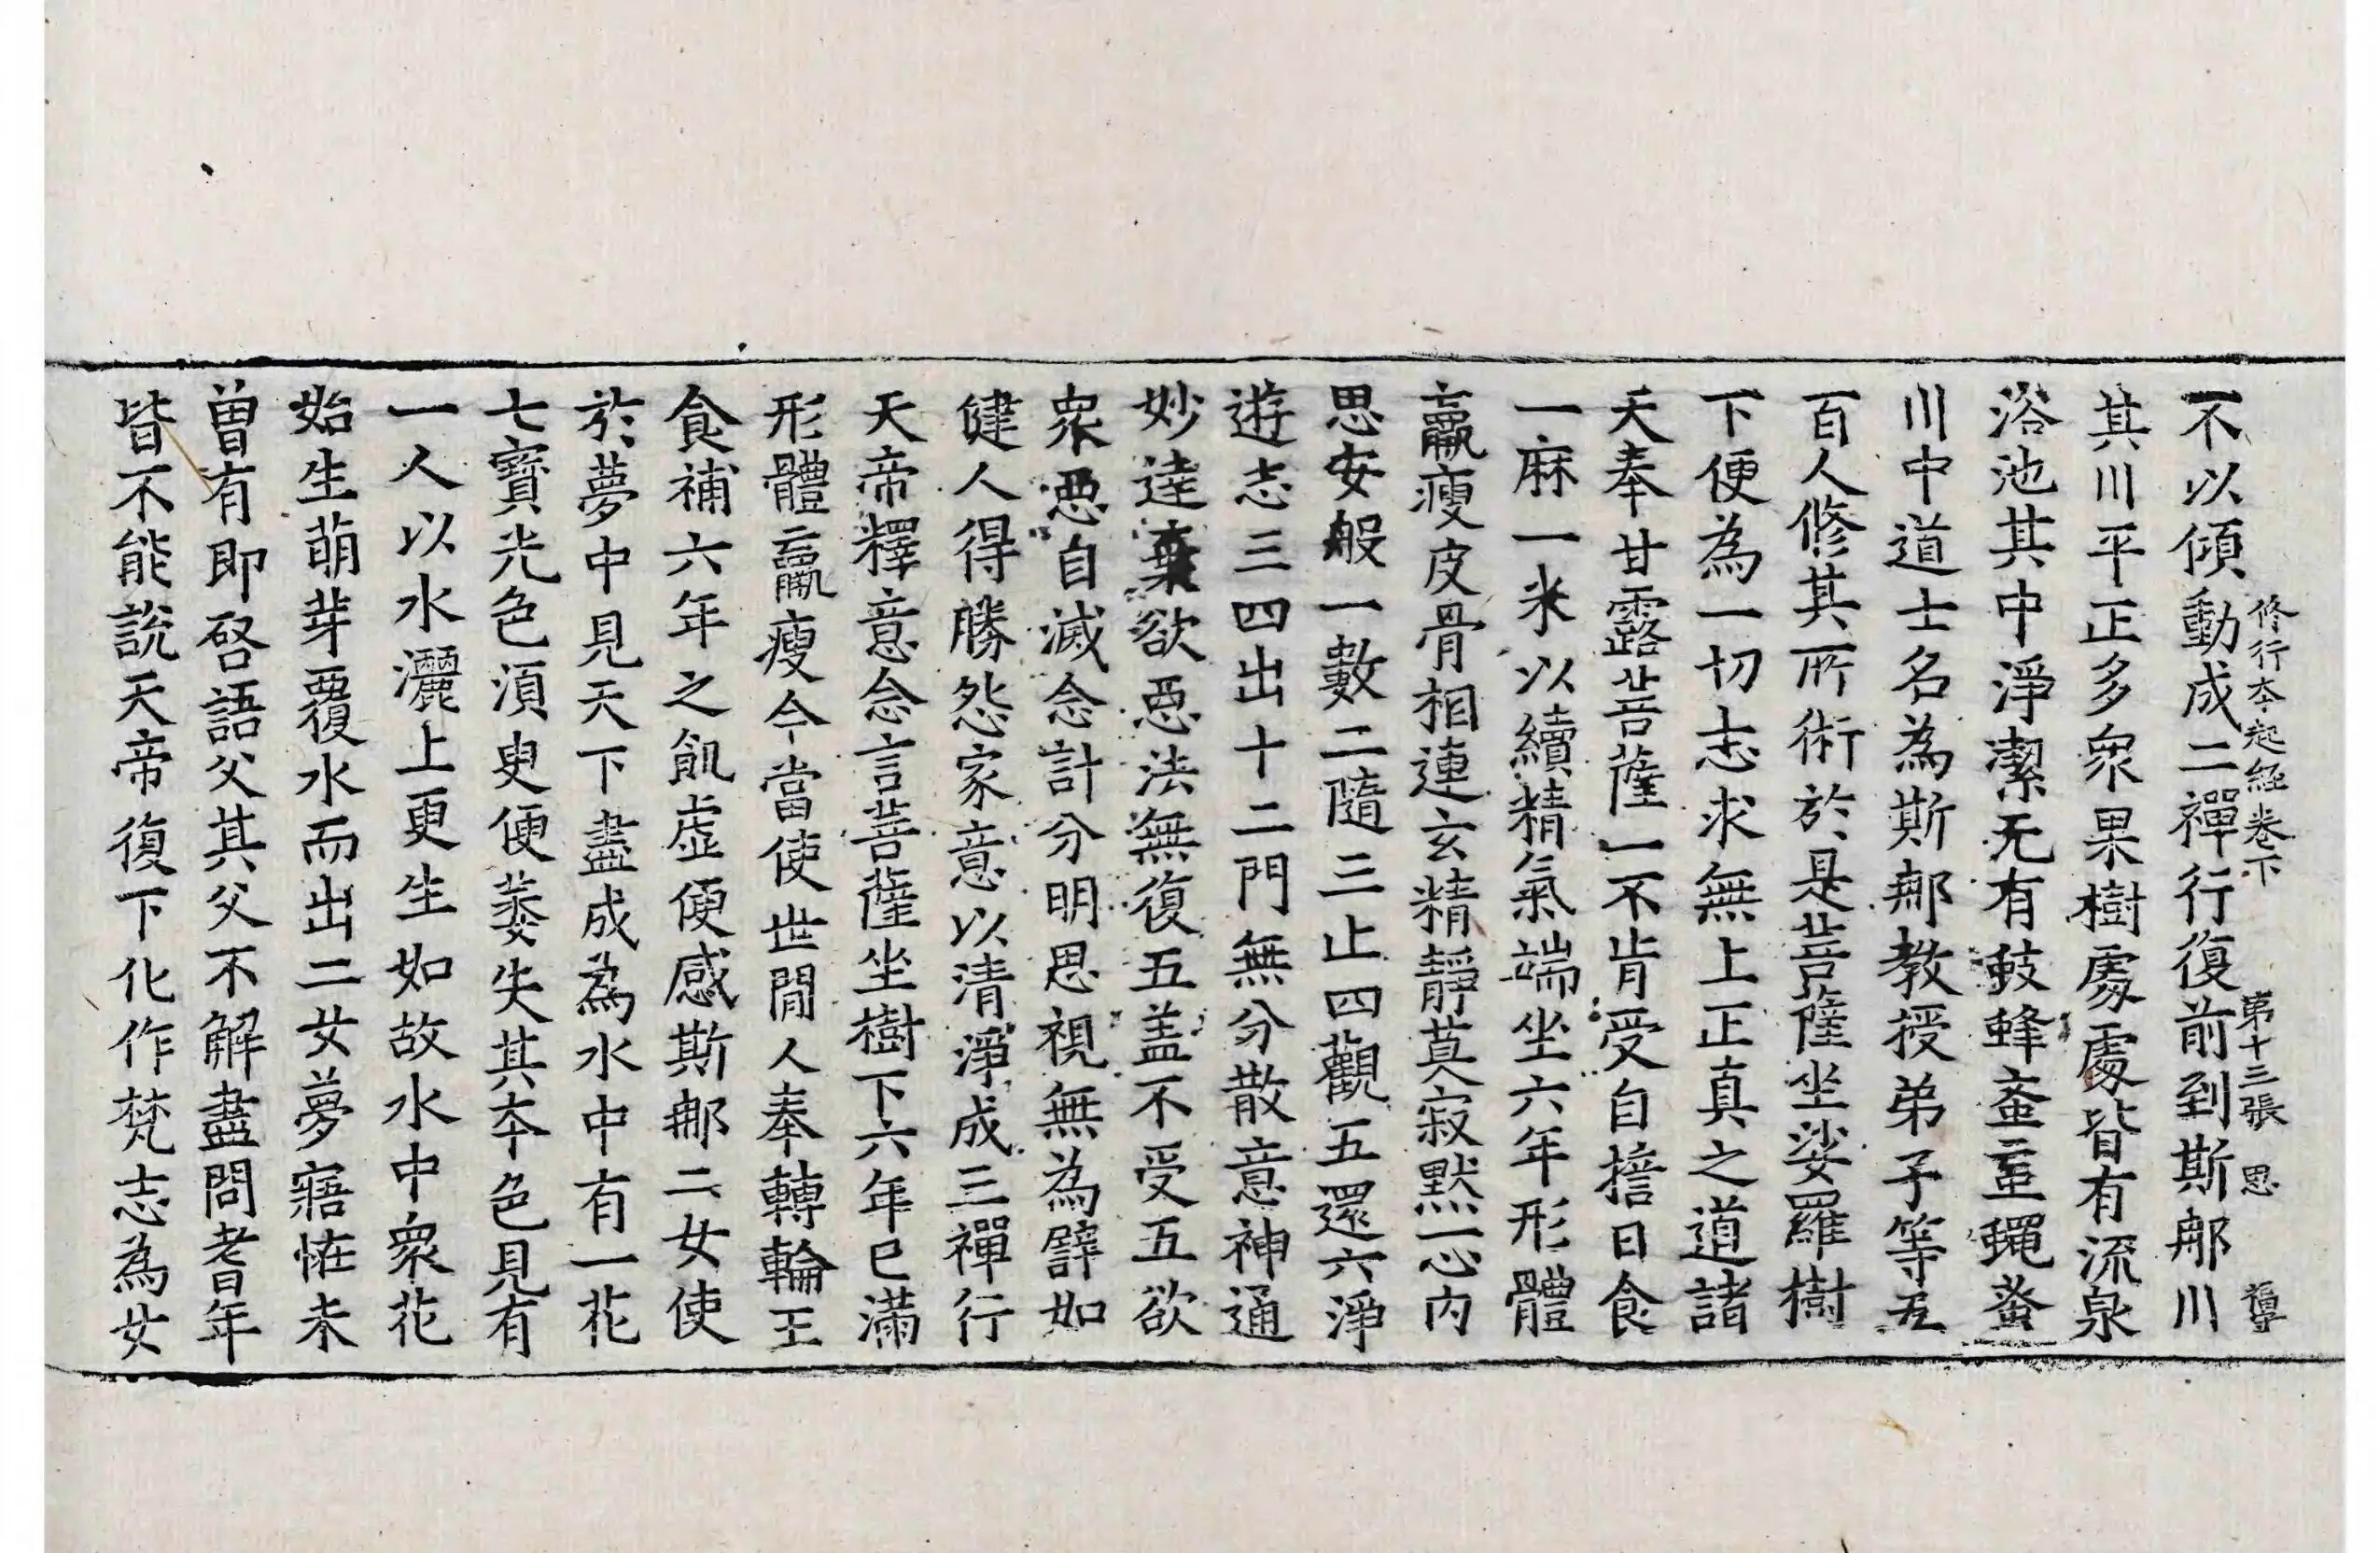 修行本起經卷下 第十三張 思
不以傾動成二禪行復前到斯那川
其川平正多衆果樹處處皆有流泉
浴池其中淨潔无有蚑蜂蚉䖟蠅蚤
川中道士名為斯那教授弟子等五
百人修其所術於是菩薩坐娑羅樹
下便為一切志求無上正真之道諸
天奉甘露菩薩一不肯受自擔日食
一麻一米以續精氣端坐六年形體
羸瘦皮骨相連玄精靜莫寂默一心內
思安般一數二隨三止四觀五還六淨
遊志三四出十二門無分散意神通
妙達棄欲惡法無復五盖不受五欲
衆惡自滅念計分明思視無為譬如
健人得勝怨家意以清淨成三禪行
天帝釋意念言菩薩坐樹下六年已滿
形體羸瘦今當使世間人奉轉輪王
食補六年之飢虛便感斯那二女使
於夢中見天下盡成為水中有一花
七寶光色湏臾便萎失其本色見有
一人以水灑上更生如故水中衆花
始生萌芽覆水而出二女夢寤恠未
曾有即啓語父其父不解盡問耆年
皆不能說天帝復下化作梵志為女